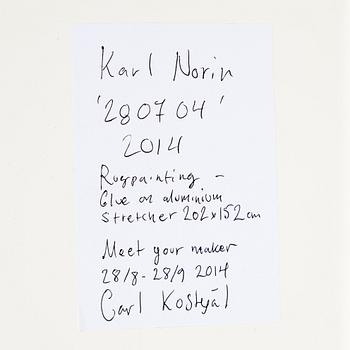 Karl Norin
'280704'
2014
Rugpainting –
Glue on aluminium
stretcher 202x152 cm
Meet your maker
28/8 - 28/9 2014
Carl Kostyál